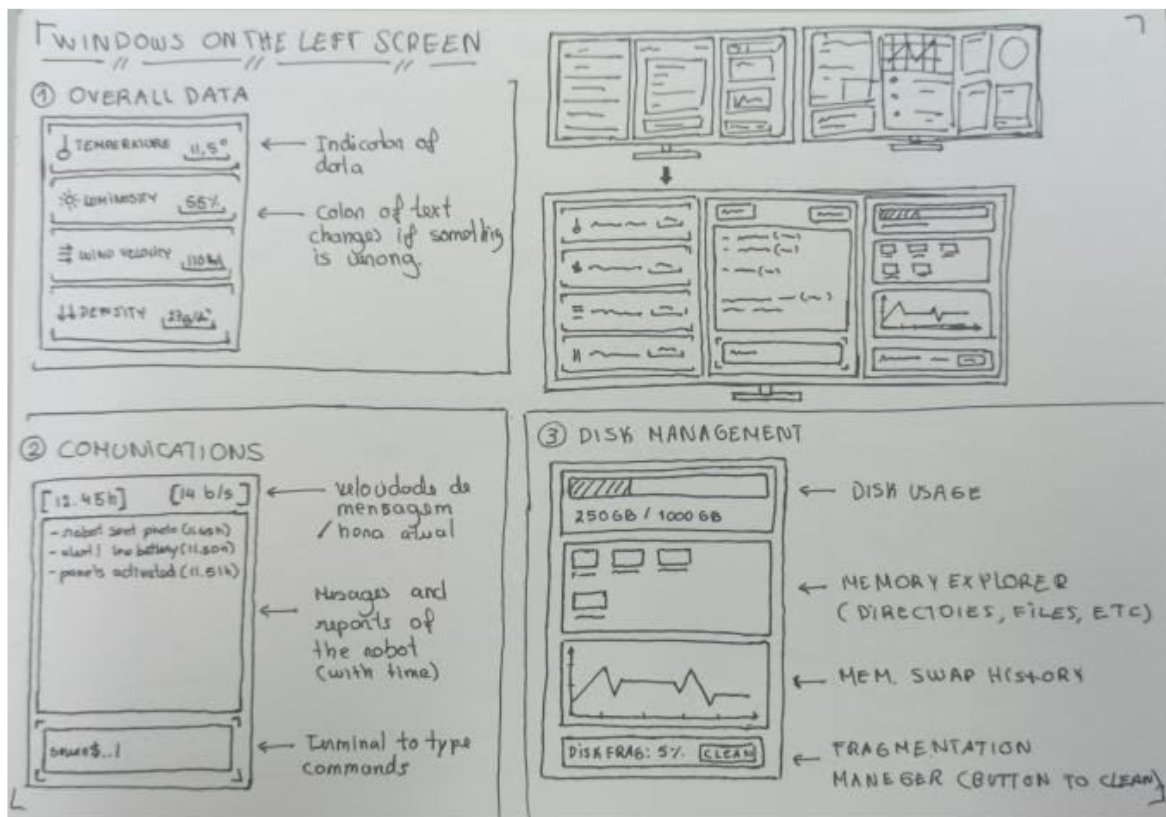 WINDOWS ON THE LEFT SCREEN
① OVERALL DATA
TEMPERATURE 11,5°
LUMINOSITY 55%
WIND VELOCITY
DENSITY
Indicator of
data
Color of text
changes if something
is wrong.
② COMUNICATIONS
[12.45h] [14 b/s]
- robot sent photo
- alert! low battery (11.50h)
- panels activated (11.51h)
velocidade de
mensagem
/ hora atual
Mesages and
reports of
the robot
(with time)
Terminal to type
commands
③ DISK MANAGEMENT
250 GB / 1000 GB
DISK FRAG: 5% CLEAN
DISK USAGE
MEMORY EXPLORER
(DIRECTOIES, FILES, ETC)
MEM. SWAP HISTORY
FRAGMENTATION
MANEGER (BUTTON TO CLEAN)